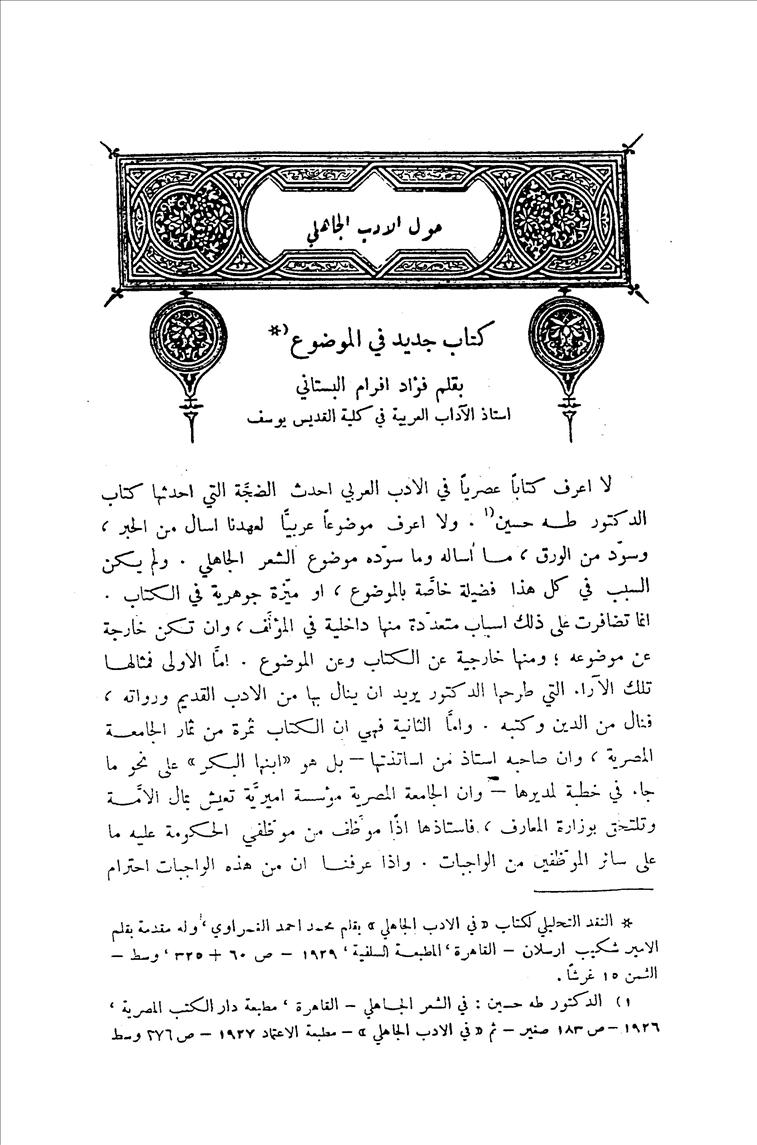 حول الادب الجاهلي
كتاب جديد في الموضوع *)
بقلم فؤاد افرام البستاني
استاذ الآداب العربية في كلية القديس يوسف
لا اعرف كتاباً عصرياً في الادب العربي احدث الضجَّة التي احدثها كتاب
الدكتور طه حسين ١) . ولا اعرف موضوعاً عربيًّا لعهدنا اسال من الحبر ،
وسوّد من الورق ، ما أساله وما سوّده موضوع الشعر الجاهلي . ولم يكن
السبب في كل هذا فضيلة خاصَّة بالموضوع ، او ميّزة جوهرية في الكتاب .
انما تضافرت على ذلك اسباب متعدّدة منها داخلية في المؤلَّف ، وان تكن خارجة
عن موضوعه ؛ ومنها خارجية عن الكتاب وعن الموضوع . امَّا الاولى فمثالها
تلك الآراء التي طرحها الدكتور يريد ان ينال بها من الادب القديم ورواته ،
فنال من الدين وكتبه . وامَّا الثانية فهي ان الكتاب ثمرة من ثمار الجامعة
المصرية ، وان صاحبه استاذ من اساتذتها – بل هو «ابنها البكر» على نحو ما
جاء في خطبة لمديرها – وان الجامعة المصرية مؤسسة اميريَّة تعيش بمال الامَّة
وتلتحق بوزارة المعارف ، فاستاذها اذًا موظَّف من موظّفي الحكومة عليه ما
على سائر الموظّفين من الواجبات . واذا عرفنا ان من هذه الواجبات احترام
* النقد التحليلي لكتاب «في الادب الجاهلي» بقلم محمد احمد الغمراوي ، وله مقدمة بقلم
الامير شكيب ارسلان – القاهرة ، المطبعة السلفية ، ١٩٢٩ – ص ٦٠ + ٣٢٥ ، وسط –
الثمن ١٥ غرشاً .
١) الدكتور طه حسين : في الشعر الجاهلي – القاهرة ، مطبعة دار الكتب المصرية ،
١٩٢٦ – ص ١٨٣ صغير – ثم «في الادب الجاهلي» – مطبعة الاعتماد ١٩٢٧ – ص ٢٧٦ وسط